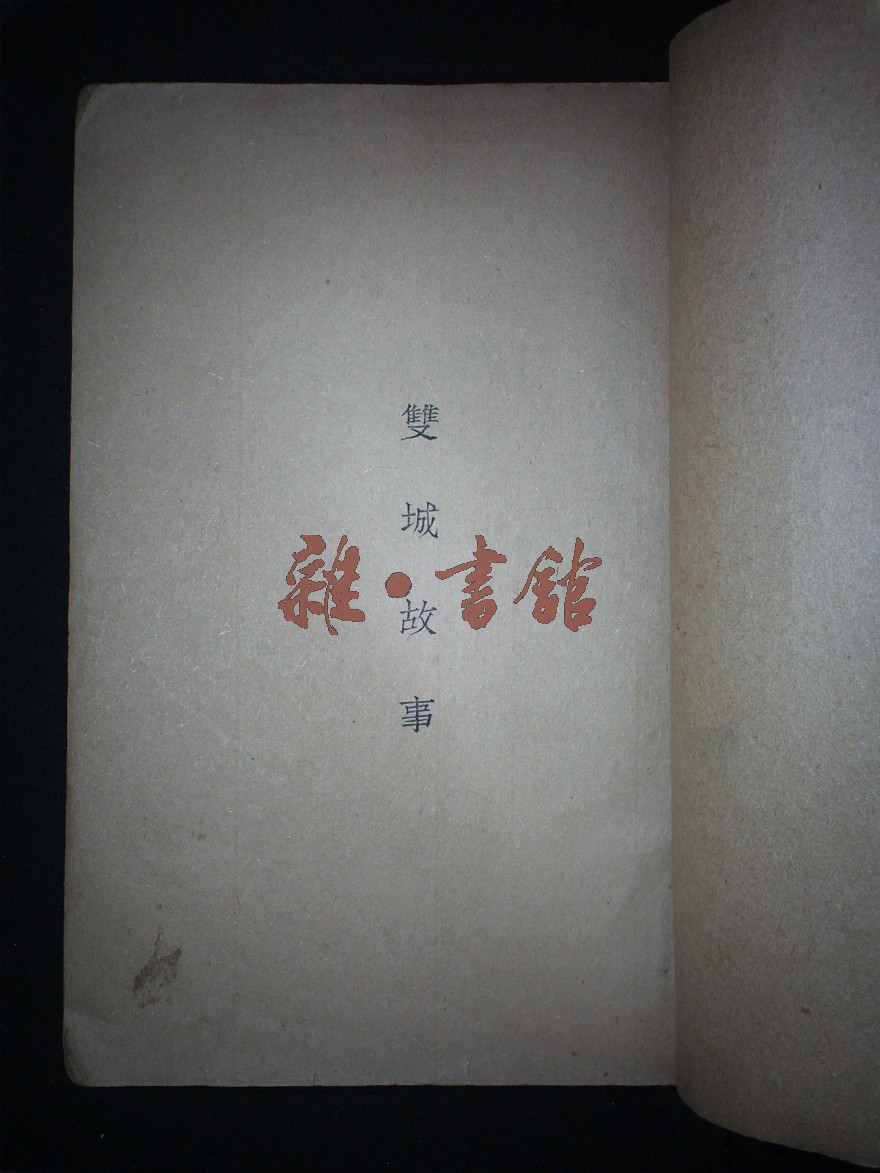 雙城故事
雜·書館